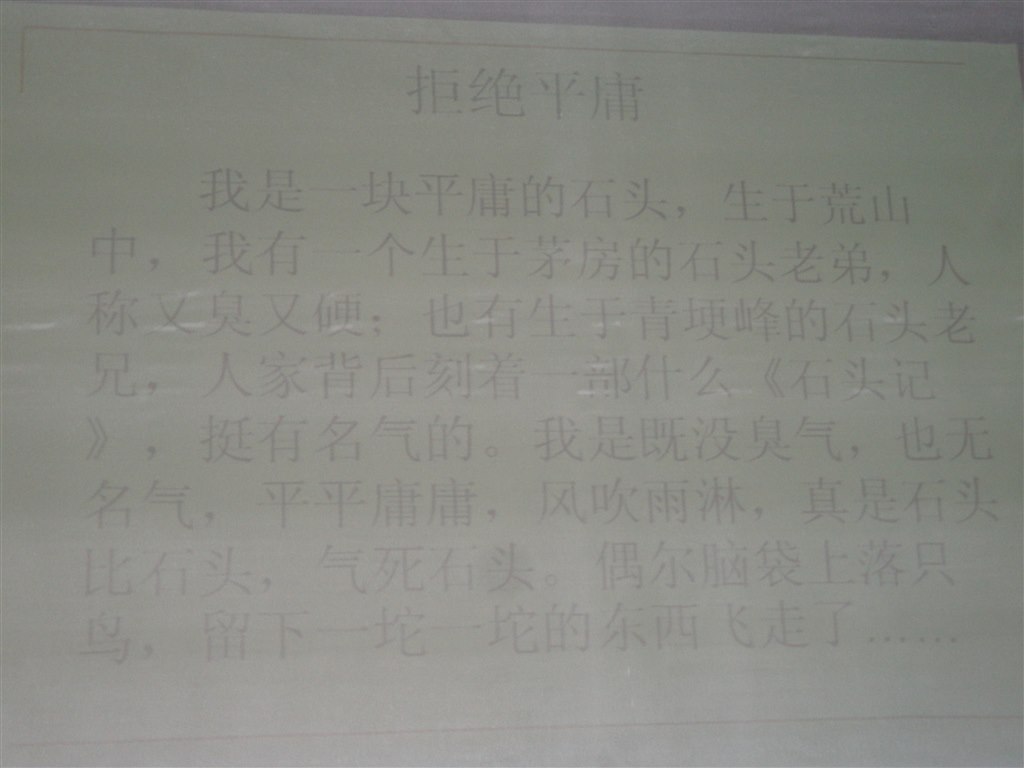 拒绝平庸
我是一块平庸的石头，生于荒山
中，我有一个生于茅房的石头老弟，人
称又臭又硬；也有生于青埂峰的石头老
兄，人家背后刻着一部什么《石头记
》，挺有名气的。我是既没臭气，也无
名气，平平庸庸，风吹雨淋，真是石头
比石头，气死石头。偶尔脑袋上落只
鸟，留下一坨一坨的东西飞走了……